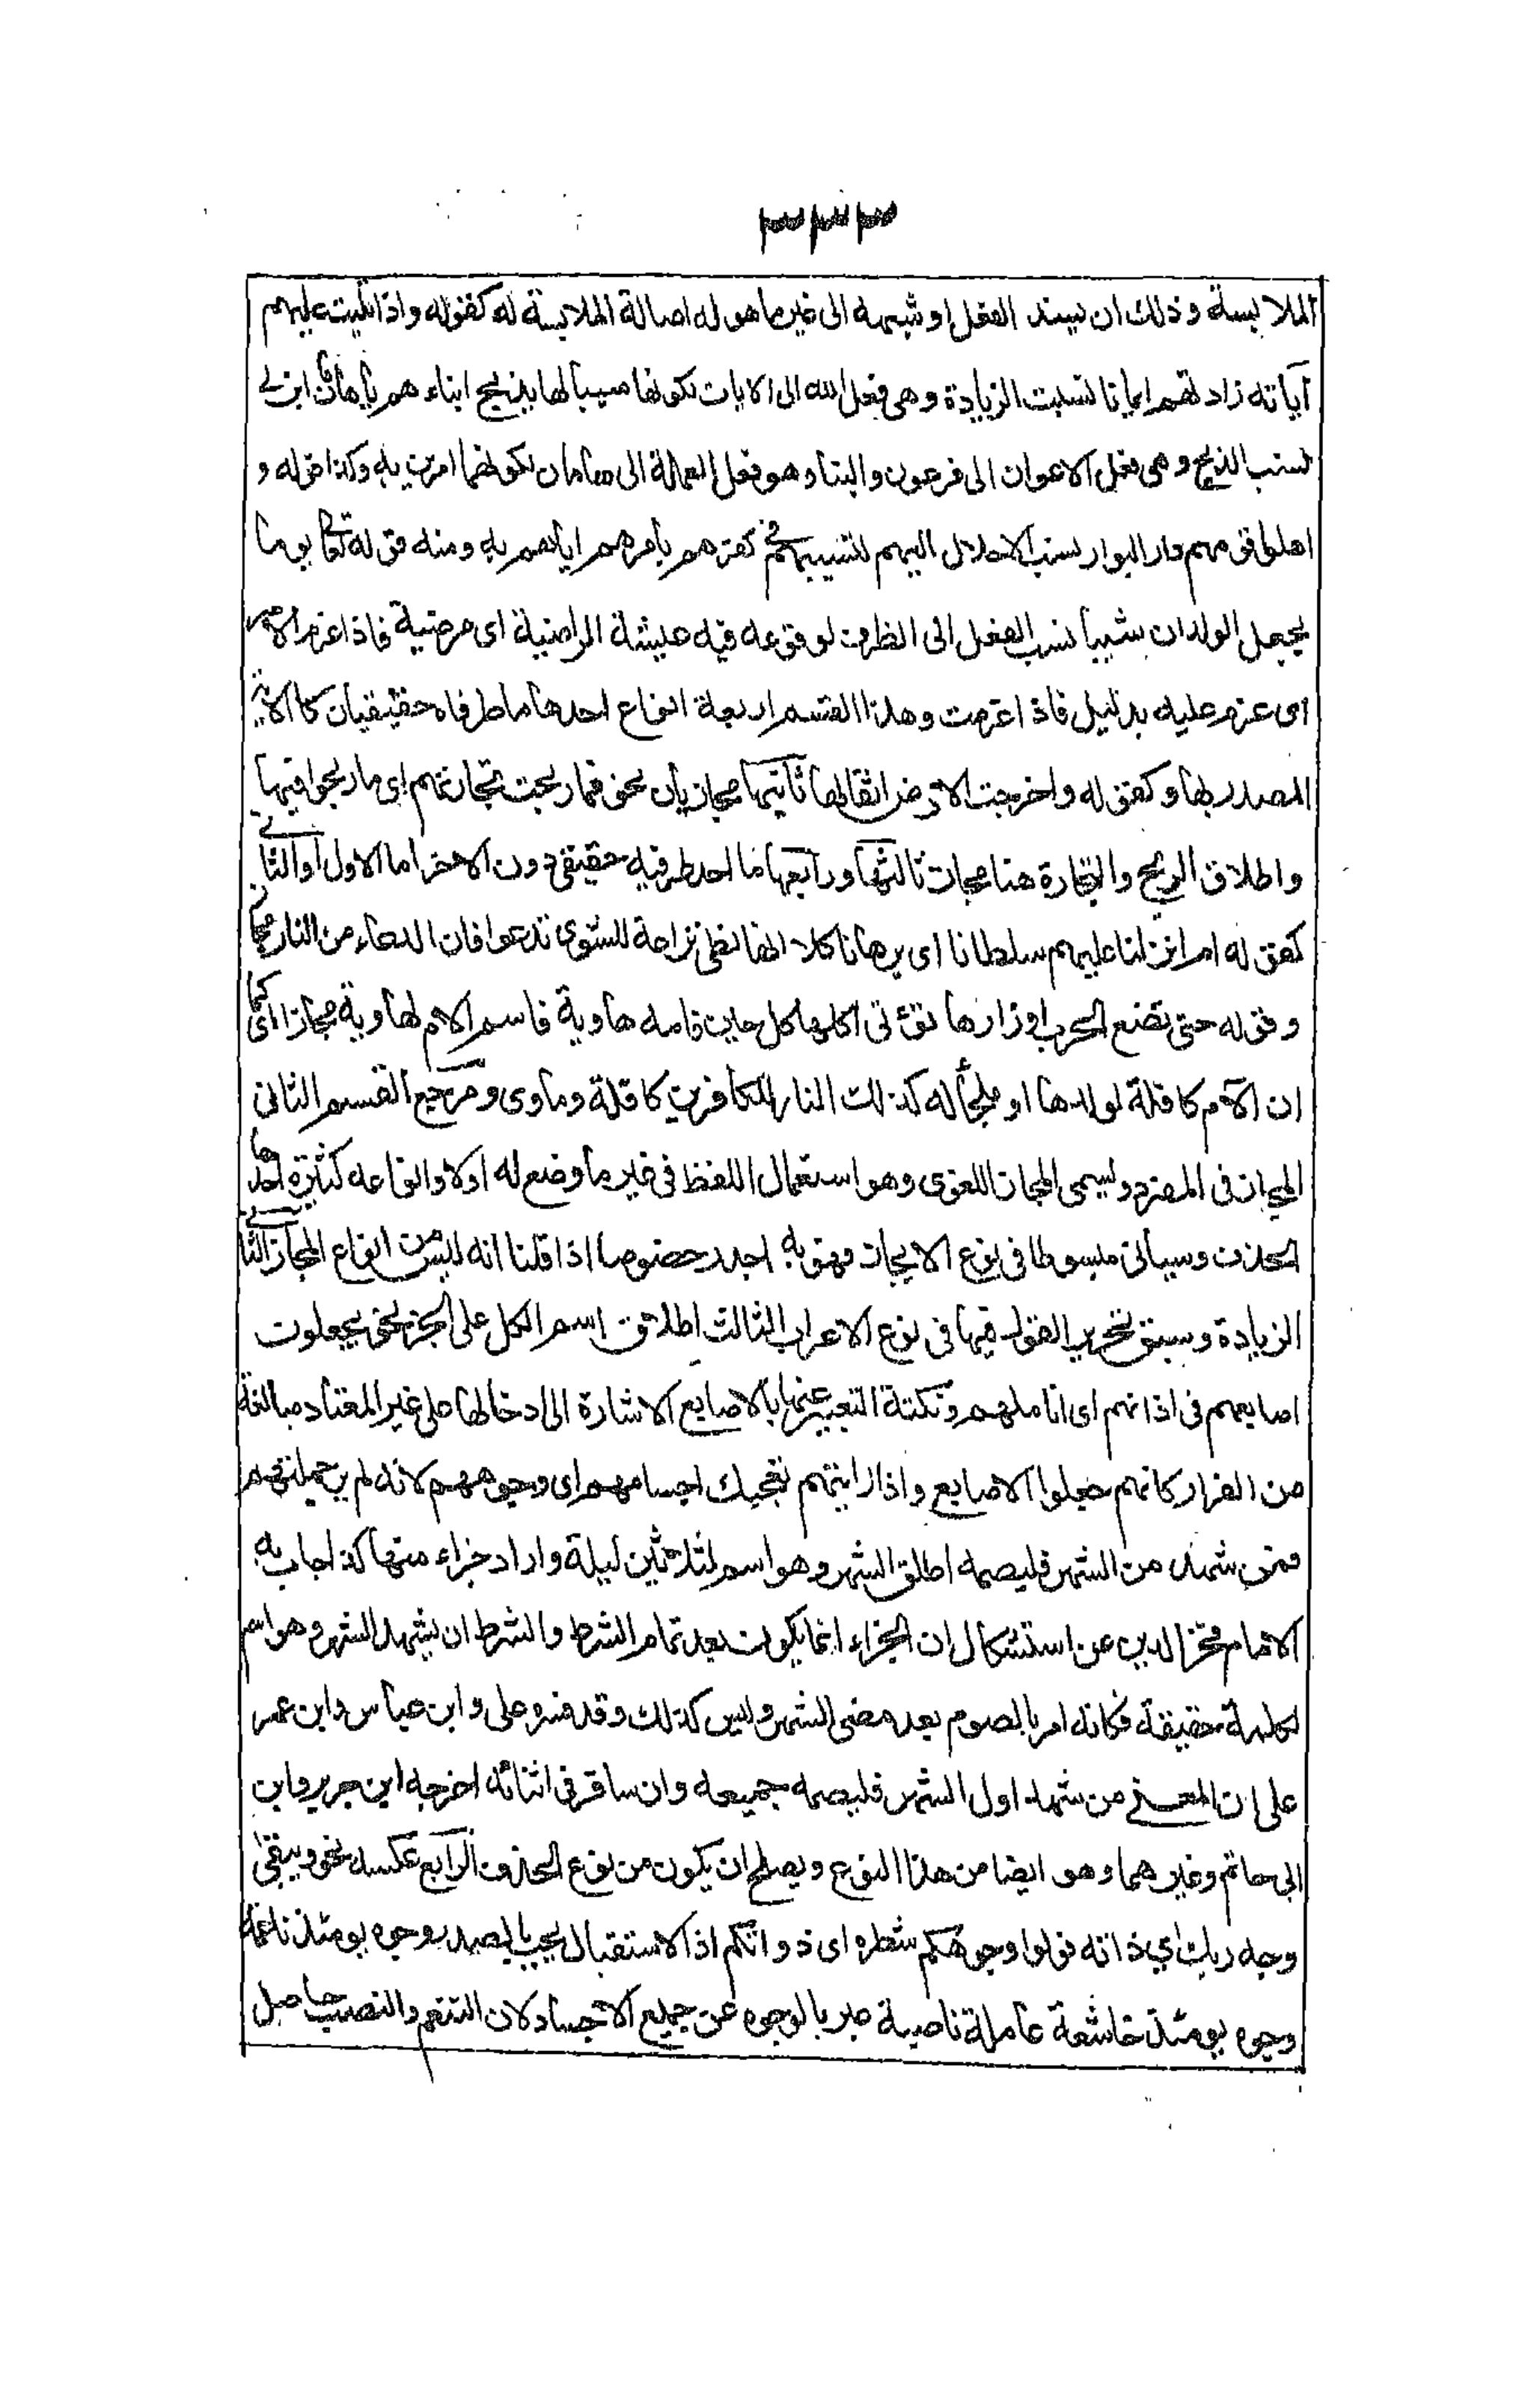 ٣٣٣
الملابسة وذلك ان يسند الفعل او شبهه الى غير ما هو له اصالة لملابسة له كقوله واذا تليت عليهم
آياته زادتهم ايمانا نسبت الزيادة وهى فعل الله الى الايات لكونها سببا لها يذبح ابناءهم يا هامان ابن لى
نسب الذبح وهى فعل الاعوان الى فرعون والبناء وهو فعل العملة الى هامان لكونهما امرين به وكذا قوله و
احلوا قومهم دار البوار نسب الاحلال اليهم لتسببهم فى كفرهم بامرهم اياهم به ومنه قوله تعالى يوما
يجعل الولدان شيبا نسب الفعل الى الظرف لوقوعه فيه عيشة الراضية اى مرضية فاذا عزم الامر
اى عزم عليه بدليل فاذا عزمت وهذا القسم اربعة انواع احدها ما طرفاه حقيقيان كالاية
المصدر بها وكقوله واخرجت الارض اثقالها ثانيها مجازيان نحو فما ربحت تجارتهم اى ما ربحوا فيها
واطلاق الربح والتجارة هنا مجاز ثالثها ورابعها ما احد طرفيه حقيقى دون الاخر اما الاول او الثانى
كقوله ام انزلنا عليهم سلطانا اى برهانا كلا انها لظى نزاعة للشوى تدعوا فان الدعاء من النار مجاز
وقوله حتى تضع الحرب اوزارها تؤتى اكلها كل حين فامه هاوية فاسم الام لهاوية مجاز اى كما
ان الام كافلة لولدها او ملجأ له كذلك النار للكافرين كافلة وماوى ومرجع القسم الثانى
المجاز فى المفرد وليسمى المجاز اللغوى وهو استعمال اللفظ فى غير ما وضع له اولا وانواعه كثيرة احدها
الحذف وسياتى مبسوطا فى نوع الايجاز فهو به اجدر خصوصا اذا قلنا انه ليس من انواع المجاز الثانى
الزيادة وسبق تحرير القول فيها فى نوع الاعراب الثالث اطلاق اسم الكل على الجزء نحو يجعلون
اصابعهم فى اذانهم اى اناملهم ونكتة التعبير عنها بالاصابع الاشارة الى ادخالها على غير المعتاد مبالغة
من الفرار كانهم جعلوا الاصابع واذا رايتهم تعجبك اجسامهم اى وجوههم لانه لم ير جملتهم
فمن شهد من الشهر فليصمه اطلق الشهر وهو اسم لثلاثين ليلة واراد جزاء منها كذا اجاب به
الامام فخر الدين عن استشكال ان الجزاء انما يكون بعد تمام الشرط والشرط ان يشهد الشهر وهو اسم
لكله حقيقة فكانه امر بالصوم بعد مضى الشهر وليس كذلك وقد فسره على وابن عباس وابن عمر
على ان المعنى من شهد اول الشهر فليصمه جميعه وان سافر فى اثنائه اخرجه ابن جرير وابن
ابى حاتم وغيرهما وهو ايضا من هذا النوع ويصلح ان يكون من نوع الحذف الرابع عكسه نحو ويبقى
وجه ربك اى ذاته فولوا وجوهكم شطره اى ذواتكم اذ الاستقبال يجب بالصدر وجوه يومئذ ناعمة
وجوه يومئذ خاشعة عاملة ناصبة عبر بالوجوه عن جميع الاجساد لان التنعم والنصب حاصل